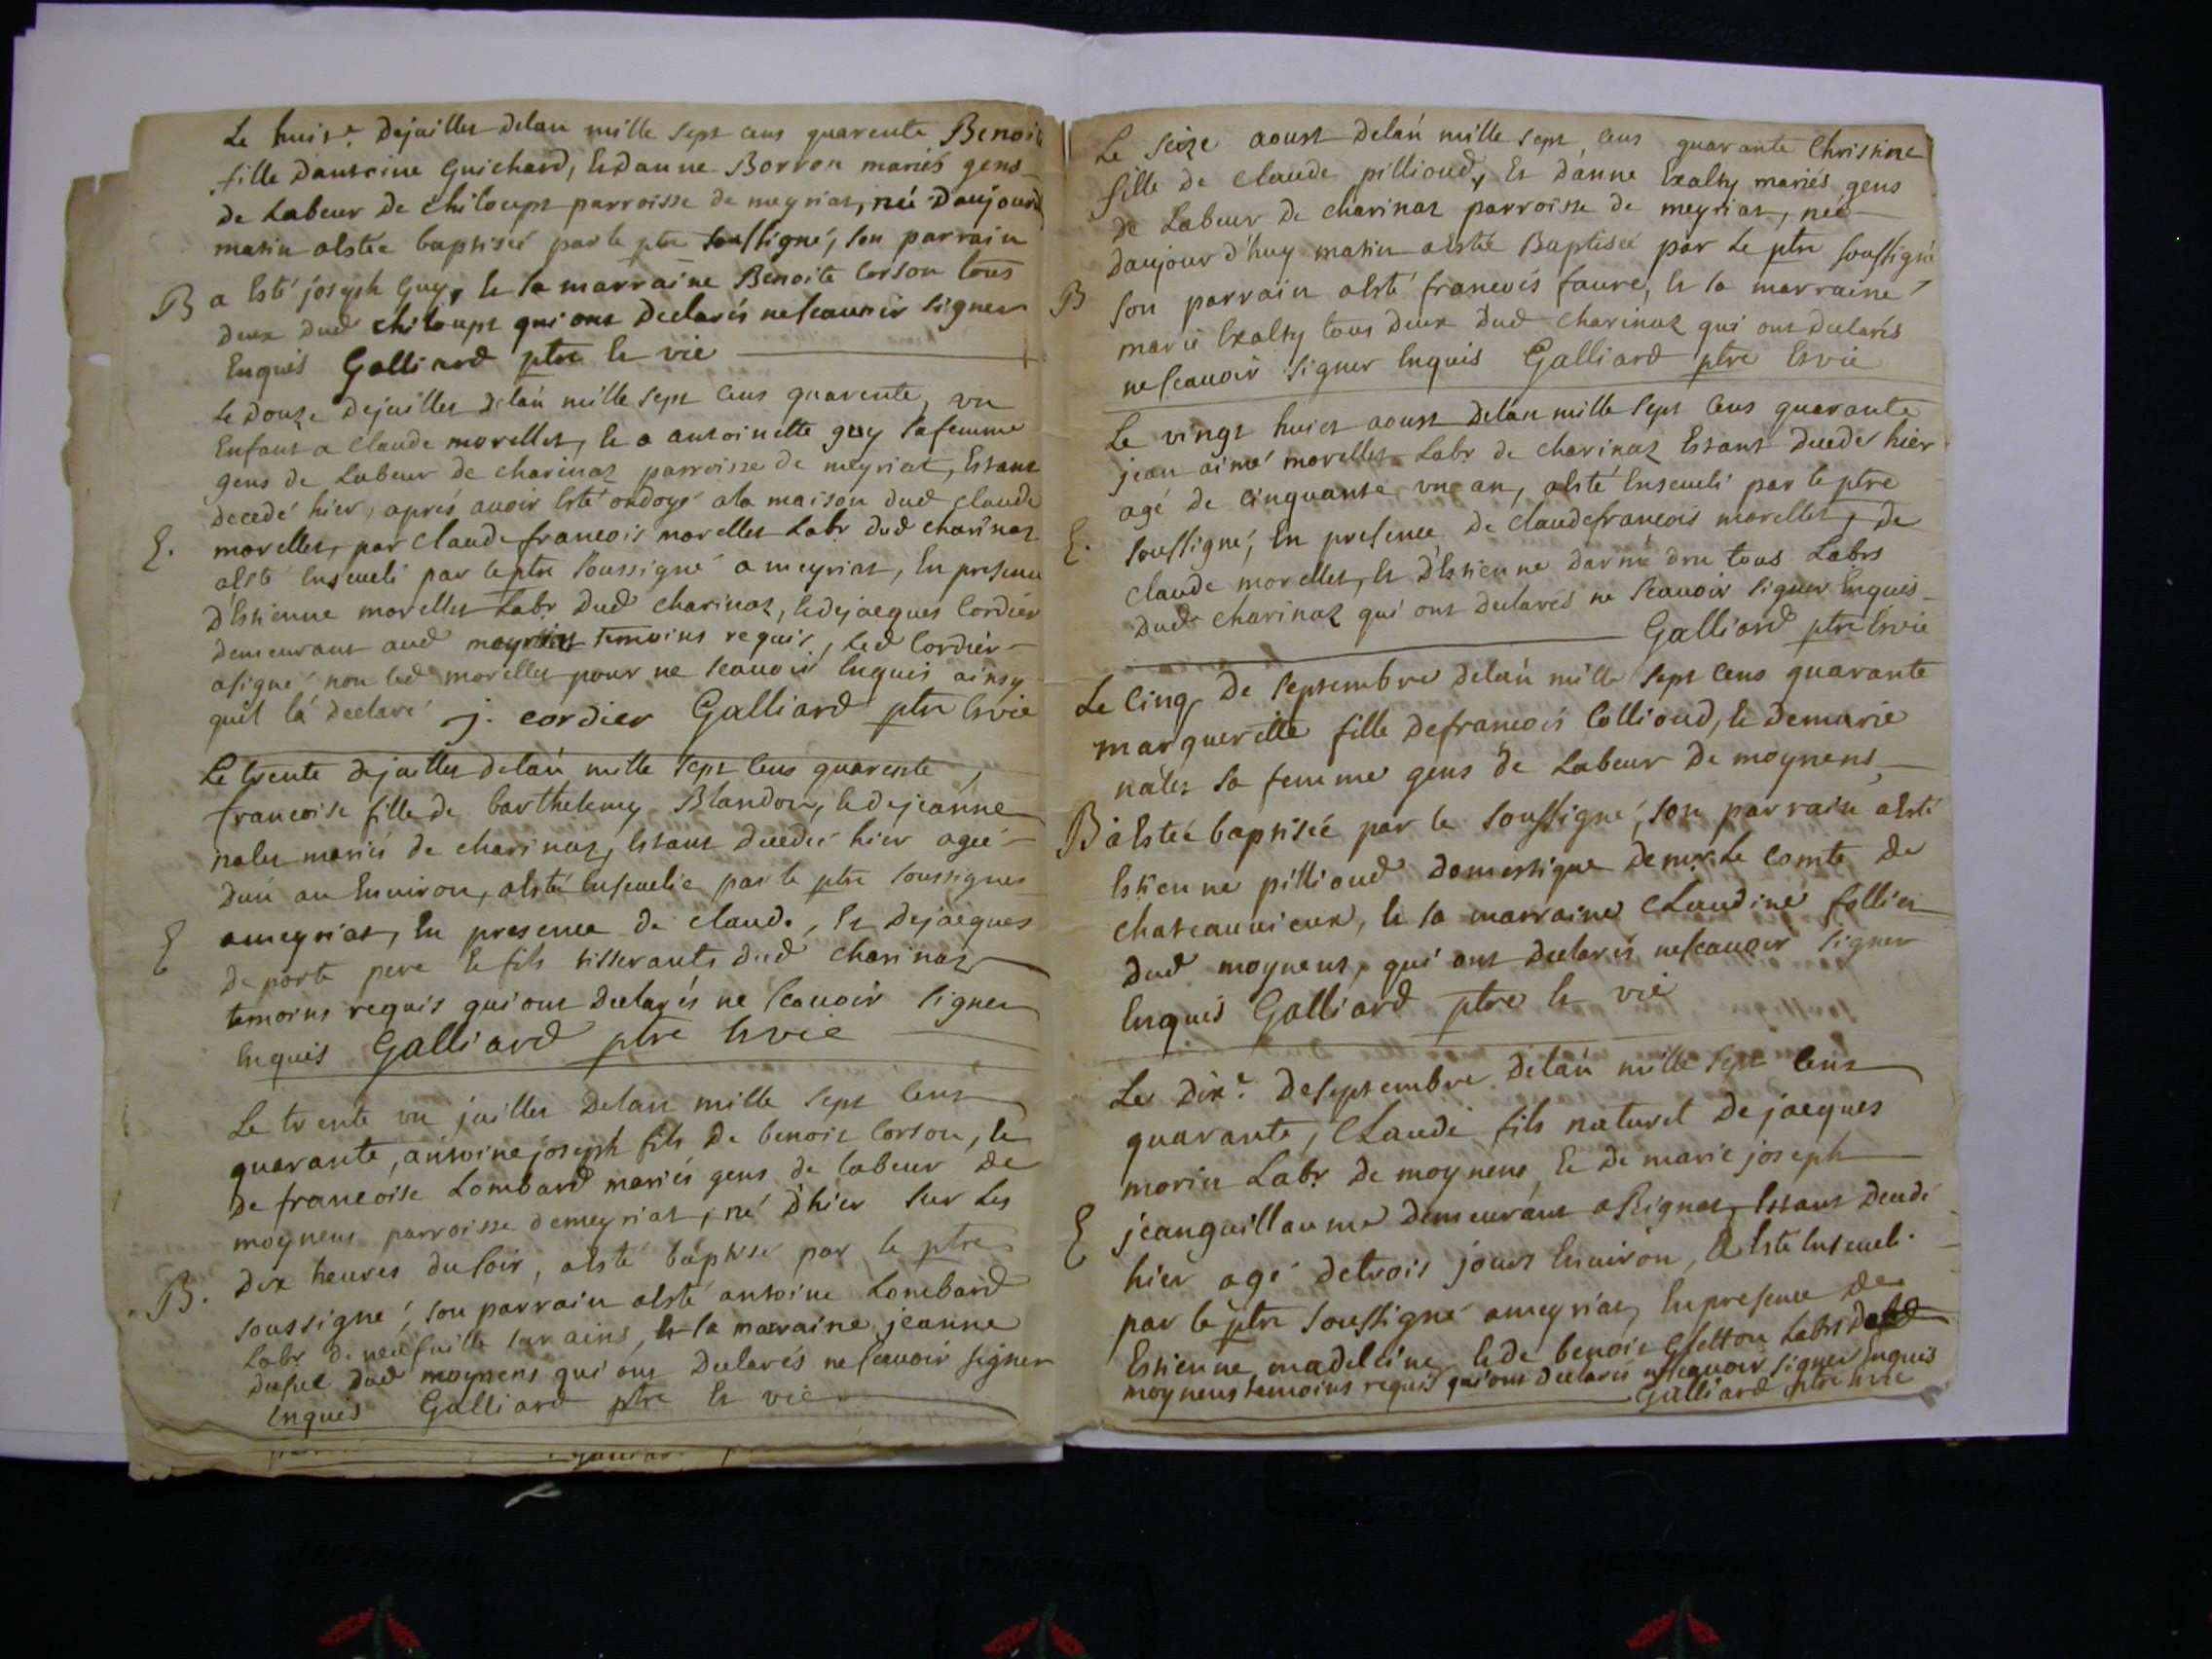 Le huit.e dejuillet delan mille sept cens quarente Benoite
fille dantoine Guichard, et danne Borron mariés gens
de Labeur de chiloup parroisse de meyriat, née daujourd
matin a esté baptisée par le ptre soussigné, son parrain
B a esté joseph Guy, et sa marraine Benoite Corson tous
deux dud chiloup qui ont declarés nescauoir signer
Enquis Galliard ptre et vic
Le douze dejuillet delan mille sept cens quarente, un
Enfant a Claude morellet, et a antoinette guy sa femme
gens de Labeur de charinaz parroisse de meyriat, Estant
decedé hier, aprés auoir esté ondoyé a la maison dud claude
E. morellet, par claude francois morellet Labr dud charinaz
a esté enseueli par le ptre soussigné a meyriat, En presence
d'Estienne morellet Labr dud charinaz, et dejacques Cordier
demeurant aud meyriat temoins requis, led Cordier
a signé non led morellet pour ne scauoir enquis ainsy
quil la declaré j. cordier Galliard ptre et vic
Le trente dejuillet delan mille sept cens quarente,
francoise fille de barthelemy Blandon, et de jeanne
nalet mariés de charinaz, Estant decedée hier agée
dun an Enuiron, a esté enseuelie par le ptre soussigné
E ameyriat, En presence de claude, et dejacques
de porte pere et fils tisserants dud charinaz
temoins requis qui ont declarés ne scauoir signer
Enquis Galliard ptre et vic
Le trente un juillet delan mille sept cens
quarante, antoine joseph fils de benoit Corson, et
de francoise Lombard mariés gens de labeur de
moynens parroisse demeyriat, né d'hier sur les
B. dix heures du soir, a esté baptisé par le ptre
soussigné, son parrain a esté antoine Lombard
Labr de neufuille sur ains, et sa marraine jeanne
dud moynens qui ont declarés ne scauoir signer
Enquis Galliard ptre et vic
Le seize aoust delan mille sept cens quarante Christine
fille de claude pillioud, Et d'anne Exalty mariés gens
de Labeur de charinaz parroisse de meyriat, née
daujourd'huy matin a esté Baptisée par Le ptre soussigné
B son parrain a esté francois faure, et sa marraine
marie Exalty tous deux dud charinaz qui ont declarés
ne scauoir signer Enquis Galliard ptre et vic
Le vingt huict aoust delan mille sept cens quarante
jean aimé morellet Labr de charinaz Estant decedé hier
agé de cinquante un an, a esté Enseueli par le ptre
E. soussigné, En presence de claudefrancois morellet, de
claude morellet, et d'Estienne darmédru tous Labrs
dud charinaz qui ont declarés ne scauoir signer Enquis
Galliard ptre et vic
Le cinq de septembre delan mille sept cens quarante
marguerite fille defrancois Collioud, et demarie
nalet sa femme gens de Labeur de moynens
B a Estée baptisée par le soussigné, son parrain a esté
Estienne pillioud domestique de mr. Le comte de
chateauuieux, et sa marraine Claudine follier
dud moynens, qui ont declarés ne scauoir signer
Enquis Galliard ptre et vic
Le dix.e deseptembre delan mille sept cens
quarante, Claude fils naturel dejacques
morin Labr de moynens, et de marie joseph
E jeanguillaume demeurant a Rignat, Estant decedé
hier agé detrois jours Enuiron, a Esté Enseueli
par le ptre soussigné ameyriat, En presence de
Estienne madeleine et de benoit Labrs dud
moynens temoins requis qui ont declarés ne scauoir signer Enquis
Galliard ptre et vic